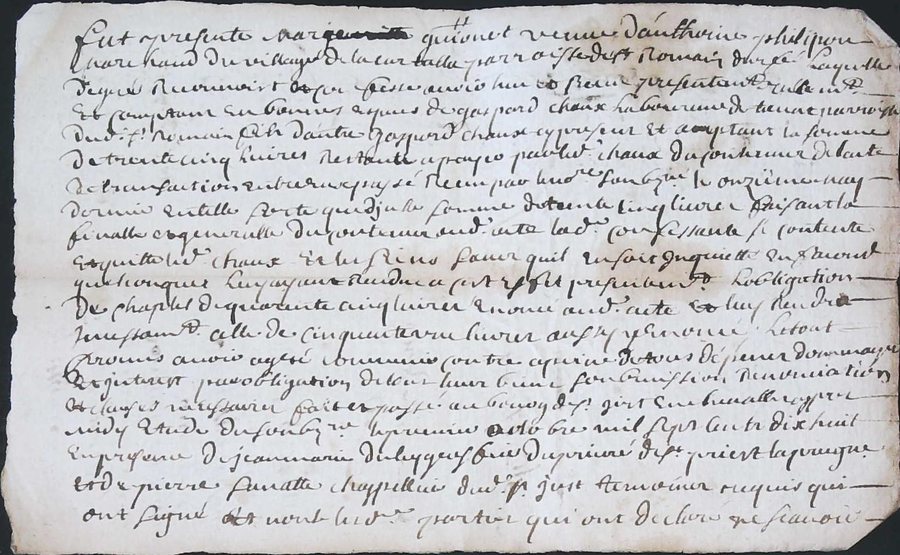 Fut presente Margueritte guionet veuve d'anthoine philipon
marchand du village de la parroisse de st Romain durfé Laquelle
de gré Reconnoist et confesse avoir heu et Receu presentemt
Et comptant En bonnes especes de gaspard chaux Laboureur parroisse
dud. st Romain fils d'autre gaspard chaux cy present Et acceptant la somme
De trente cinq livres Restante a payer par led. chaux du contenu de lacte
De transaction entre eux passé Receu par le nore soubzne le onzieme may
dernier En telle sorte que de jcelle somme de trente cinq livres faisant la
finalle et generalle du contenu aud. acte lad. confessante se contente
Et quitte led. chaux Et les siens sans quil En soit Inquiette
quelconques Luy ayant Rendu a cet effet presentemt Lobligation
De charles de quarante cinq livres Enoncé aud. acte Et luy Rendra
Incessamt celle de cinquante livres aussy y Enoncé Le tout
promis avoir agreé contre a peine de tous dépens dommages
Et interest par obligation de tout leur biens soubmission Renonciation
Et clauses necessaires fait et passé au bourg de st just En chevallet appres
midy Etude du soubzne le premier octobre mil sept cents dix huit
En presence de Jean marie du prieuré de st priest la prugne
Et de pierre chappellier dud. st just temoins requis qui
ont signé Et non les d. parties qui ont declaré ne scavoir